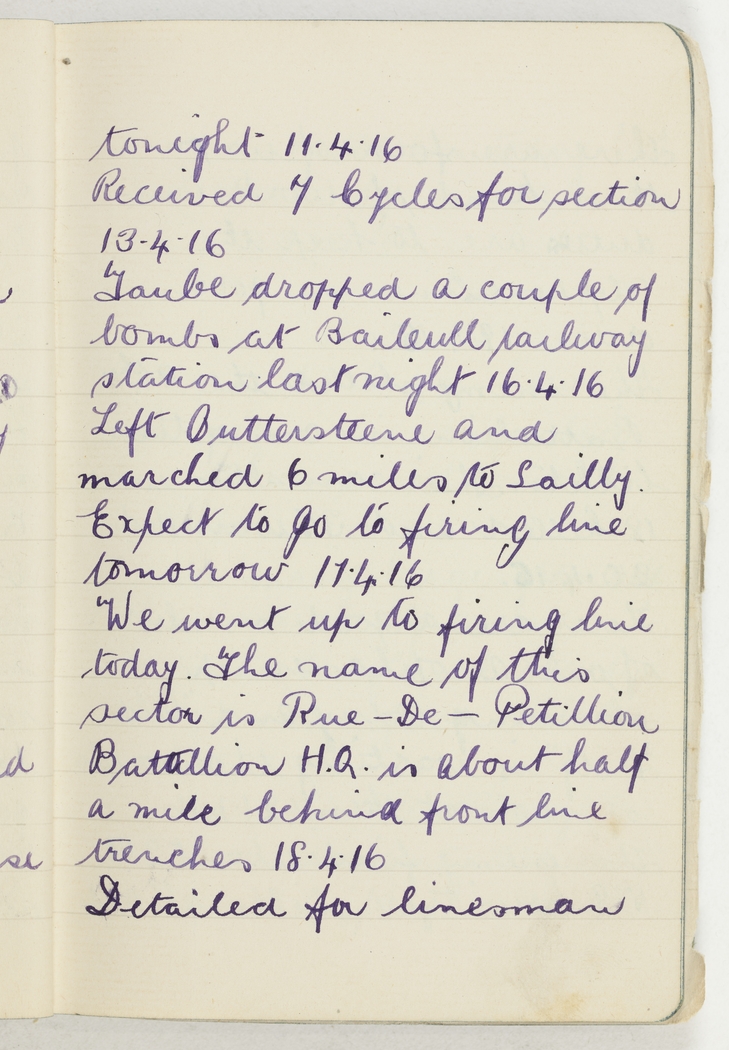 tonight 11.4.16
Received 7 Cycles for section
13.4.16
Taube dropped a couple of
bombs at Baileull railway
station last night 16.4.16
Left Outtersteene and
marched 6 miles to Sailly.
Expect to go to firing line
tomorrow 17.4.16
We went up to firing line
today. The name of this
sector is Rue-De-Petillion
Batallion H.Q. is about half
a mile behind front line
trenches 18.4.16
Detailed for linesman
d
se